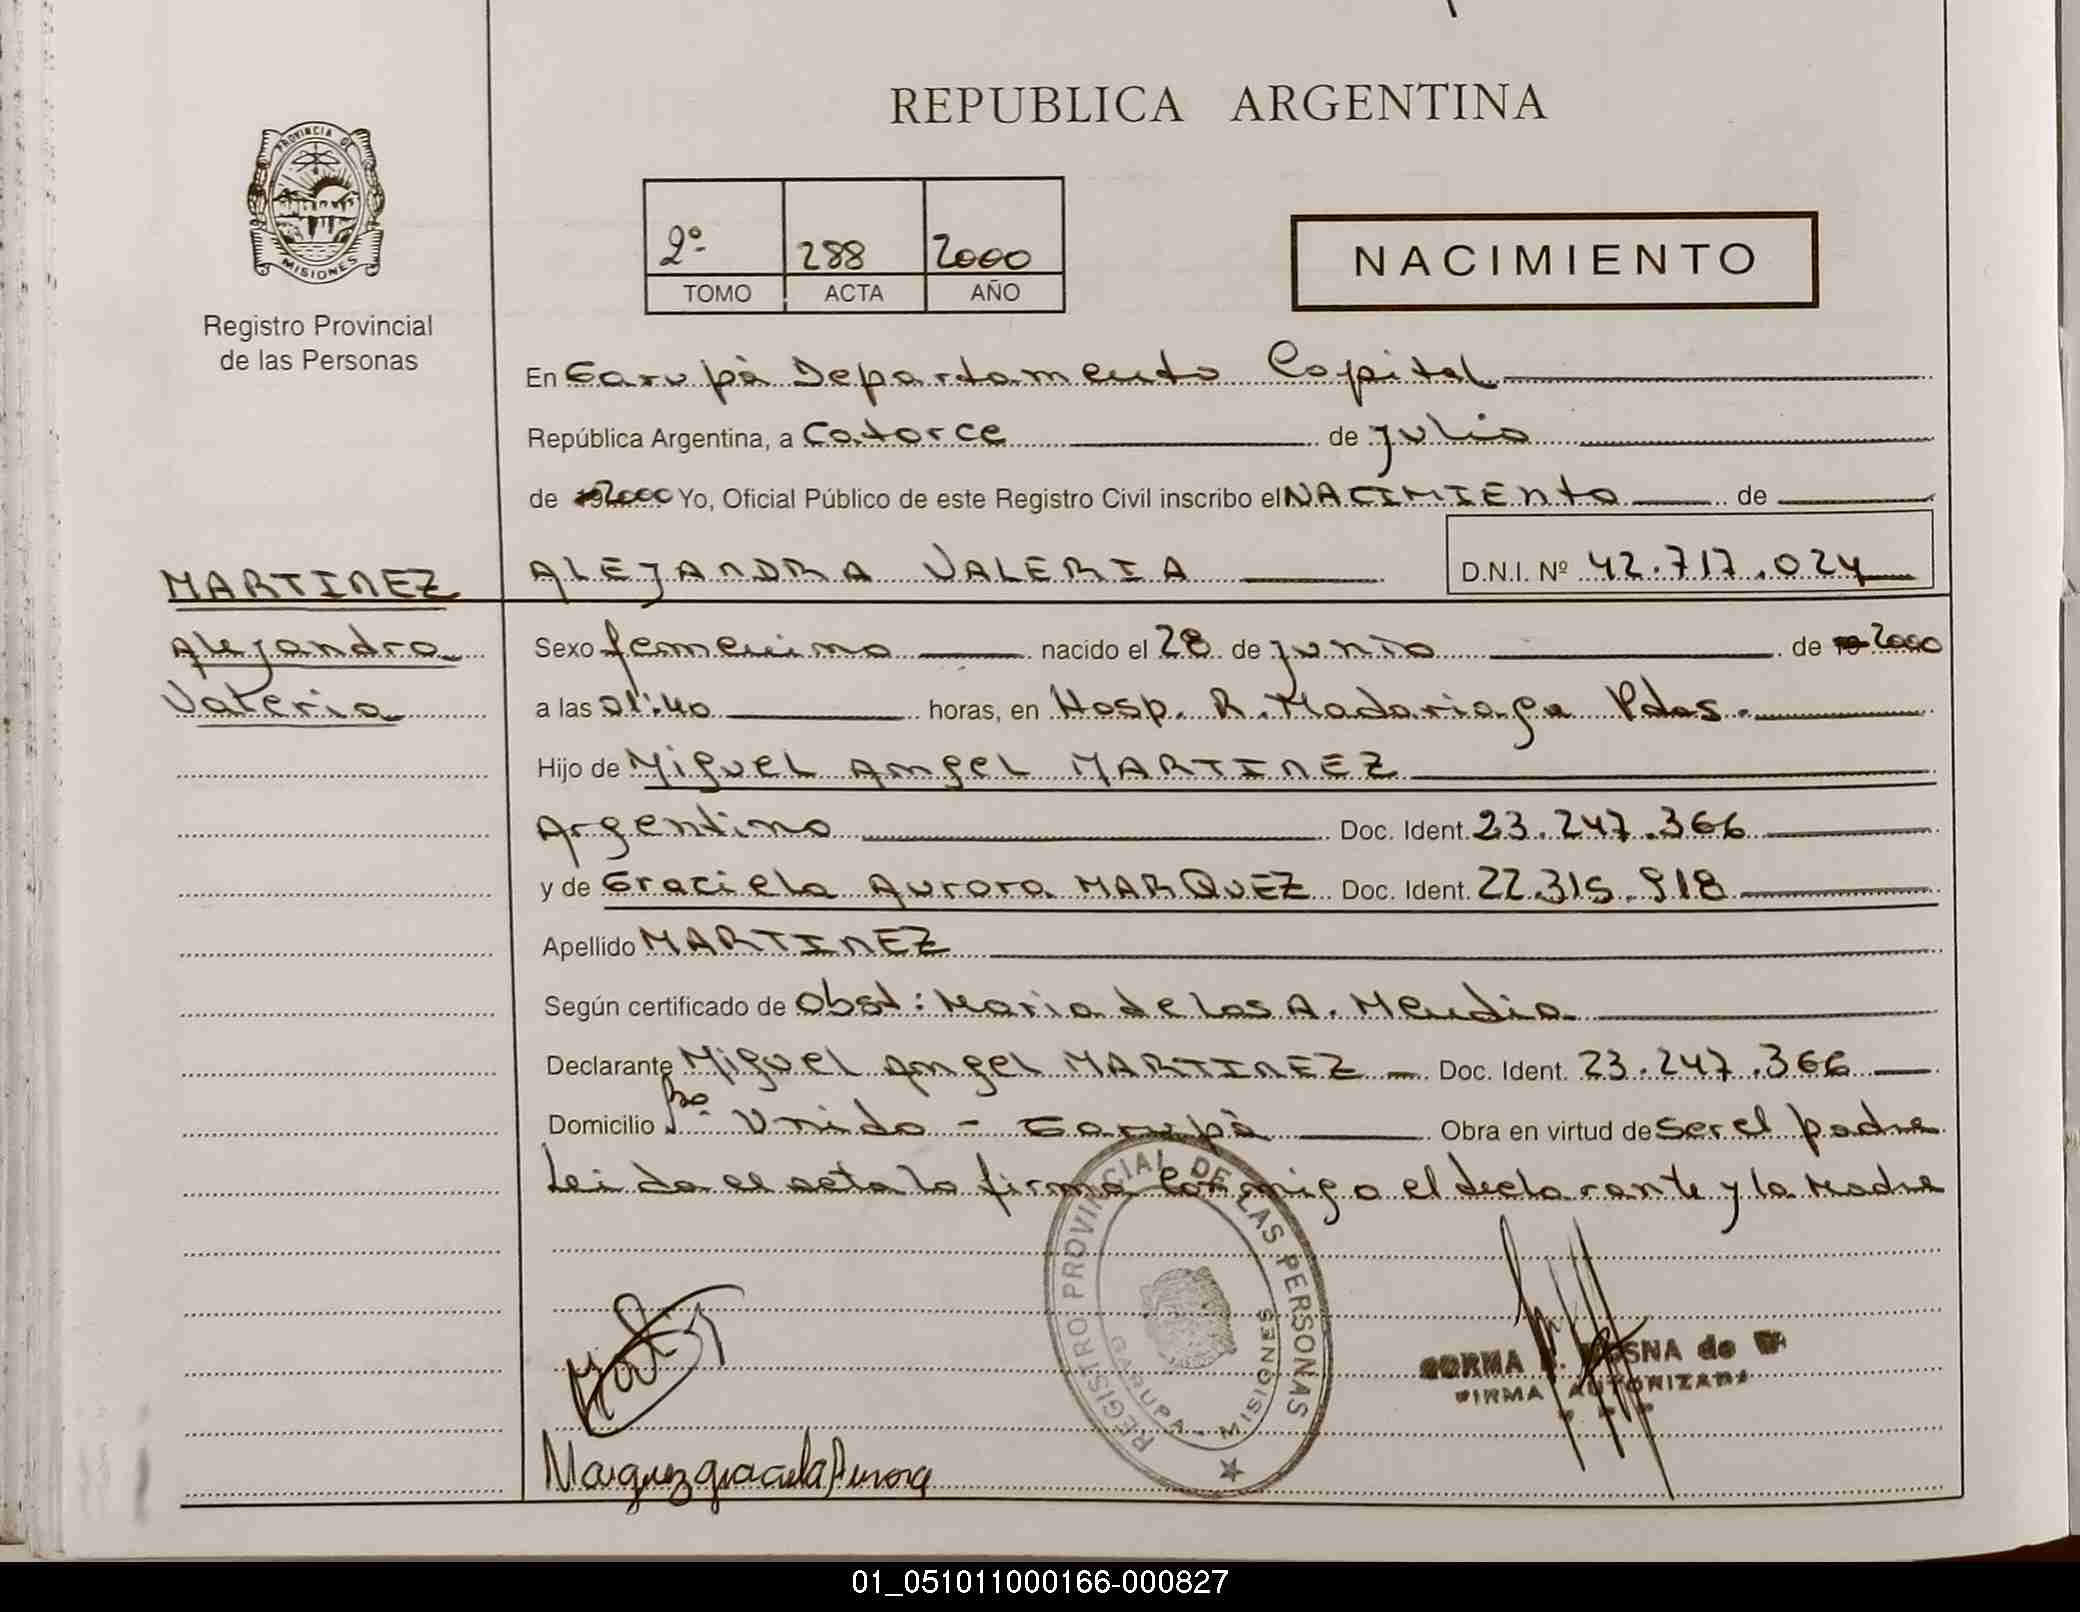 REPUBLICA ARGENTINA
PROVINCIA DE
MISIONES
Registro Provincial
de las Personas
2º 288 2000
TOMO ACTA AÑO
NACIMIENTO
En Garupà Departamento Capital
República Argentina, a Catorce de julio
de 2000 Yo, Oficial Público de este Registro Civil inscribo el NACIMIEnto de
MARTINEZ ALEJANDRA VALERIA D.N.I. Nº 42.717.024
Alejandra Sexo femenino nacido el 28 de junio de 2000
Valeria a las 01:40 horas, en Hosp. R. Madariaga Pdas.
Hijo de Miguel Angel MARTINEZ
Argentino Doc. Ident. 23.247.366
y de Graciela Aurora MARQUEZ Doc. Ident. 22.315.918
Apellido MARTINEZ
Según certificado de Obst: Maria de los A. Mendia
Declarante Miguel Angel MARTINEZ Doc. Ident. 23.247.366
Domicilio Bº Unido - Garupà Obra en virtud de ser el padre
Leida el acta la firma conmigo el declarante y la Madre
REGISTRO PROVINCIAL DE LAS PERSONAS
GARUPA - MISIONES
FIRMA AUTORIZADA
Marquez graciela Aurora
01_051011000166-000827